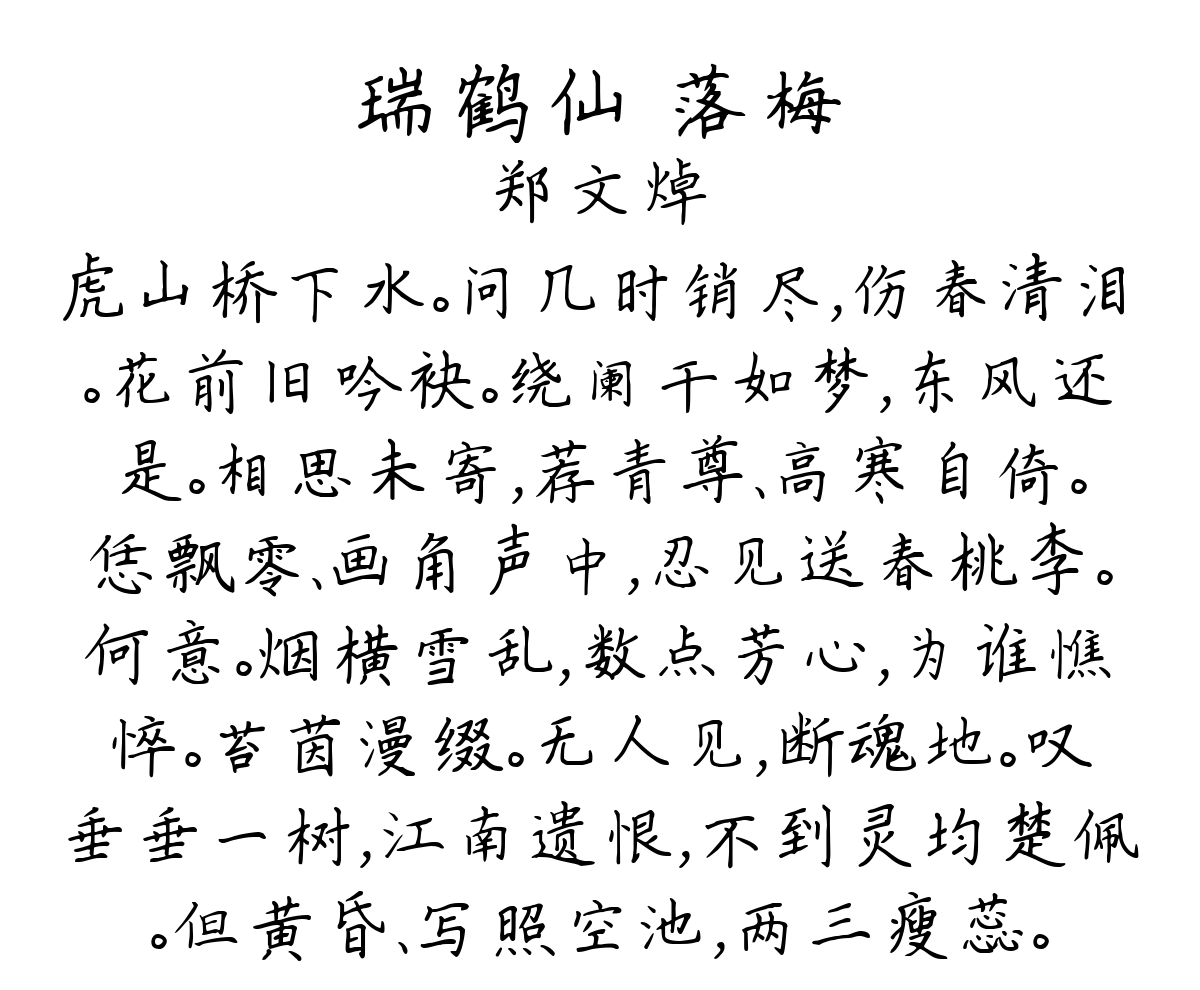 瑞鹤仙 落梅
郑文焯
虎山桥下水。问几时销尽,伤春清泪
。花前旧吟袂。绕阑干如梦,东风还
是。相思未寄,荐青尊、高寒自倚。
恁飘零、画角声中,忍见送春桃李。
何意。烟横雪乱,数点芳心,为谁憔
悴。苔茵漫缀。无人见,断魂地。叹
垂垂一树,江南遗恨,不到灵均楚佩
。但黄昏、写照空池,两三瘦蕊。